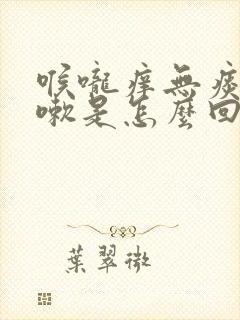 喉嚨痒無痰
嗽是怎麼回
葉翠微